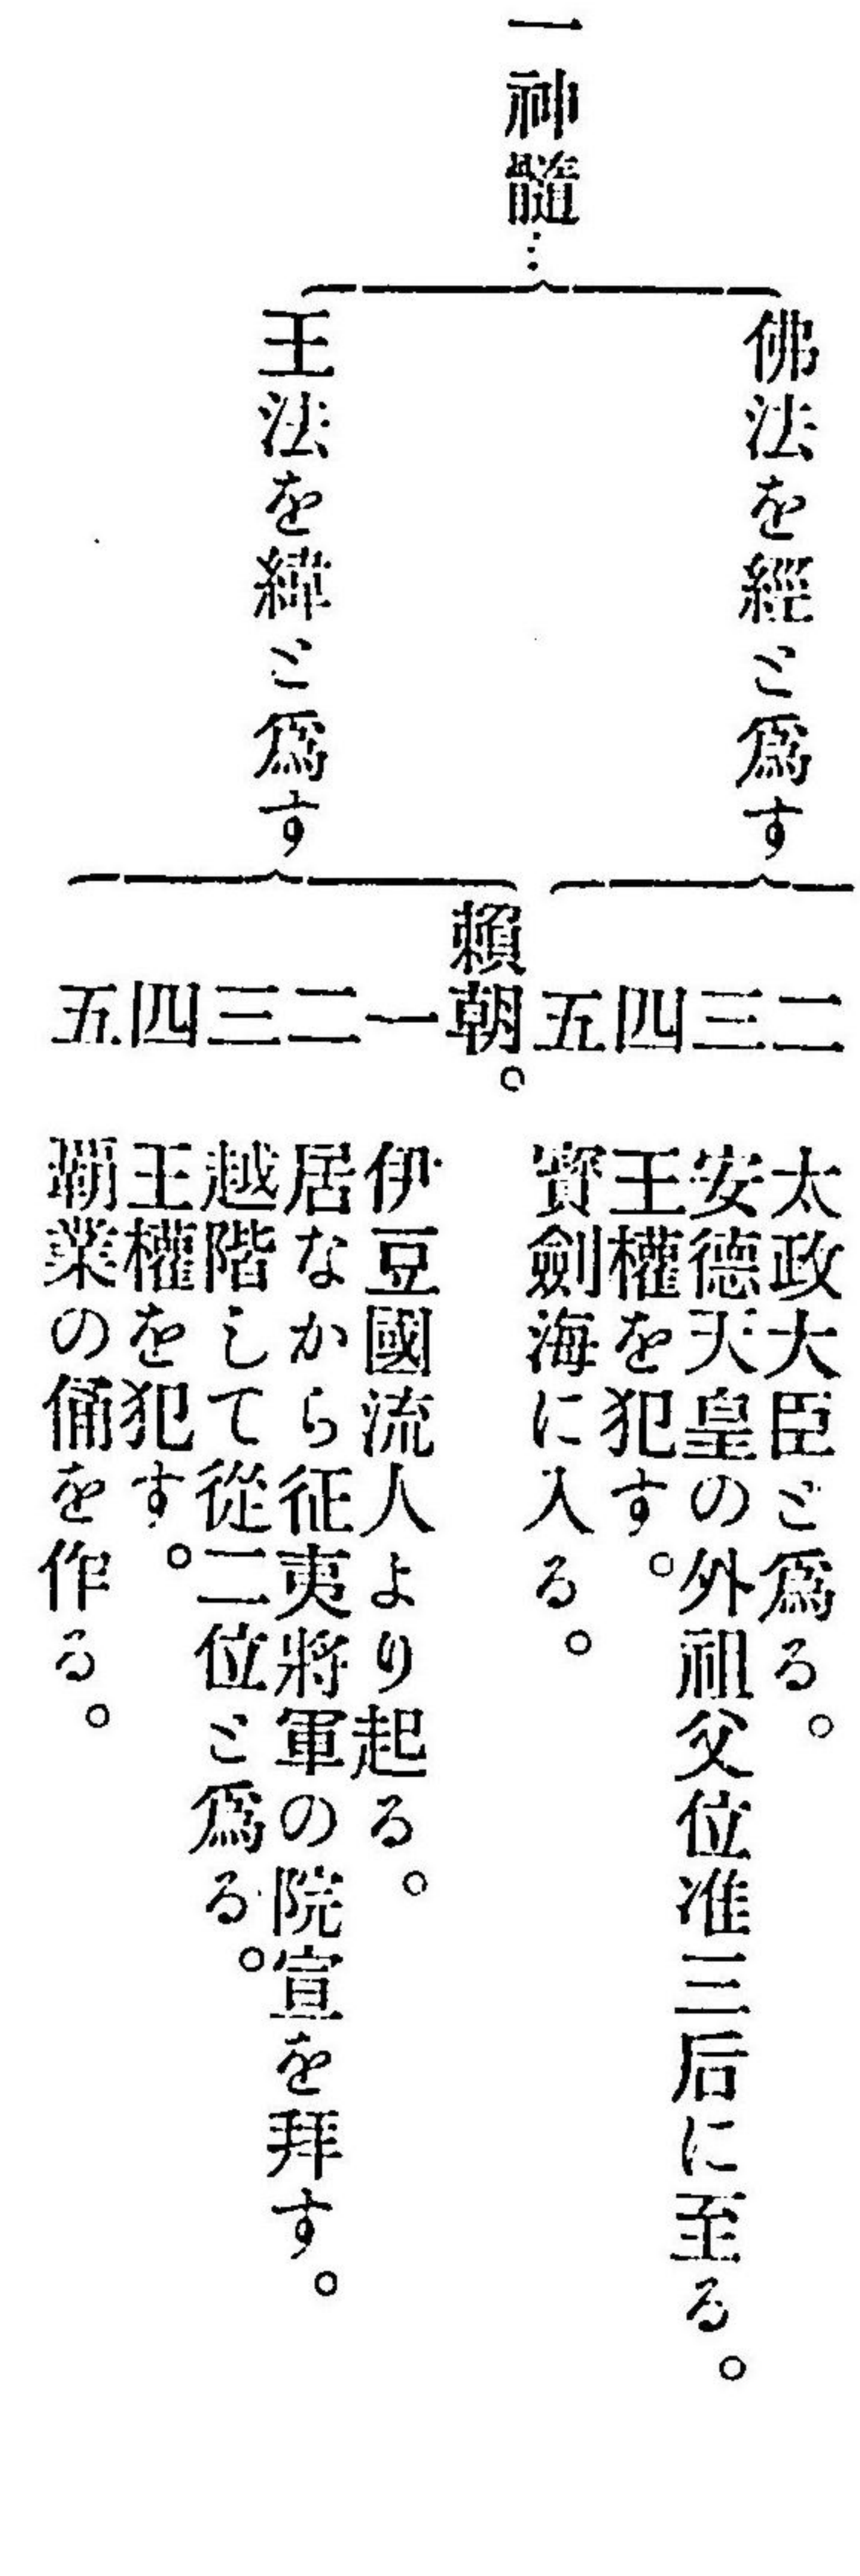 一神髓…
佛法を經と爲す
二 太政大臣と爲る。
三 安德天皇の外祖父位准三后に至る。
四 王權を犯す。
五 寳劍海に入る。
王法を緯と爲す
賴朝。
一 伊豆國流人より起る。
二 居なから征夷將軍の院宣を拜す。
三 越階して從二位と爲る。
四 王權を犯す。
五 覇業の俑を作る。